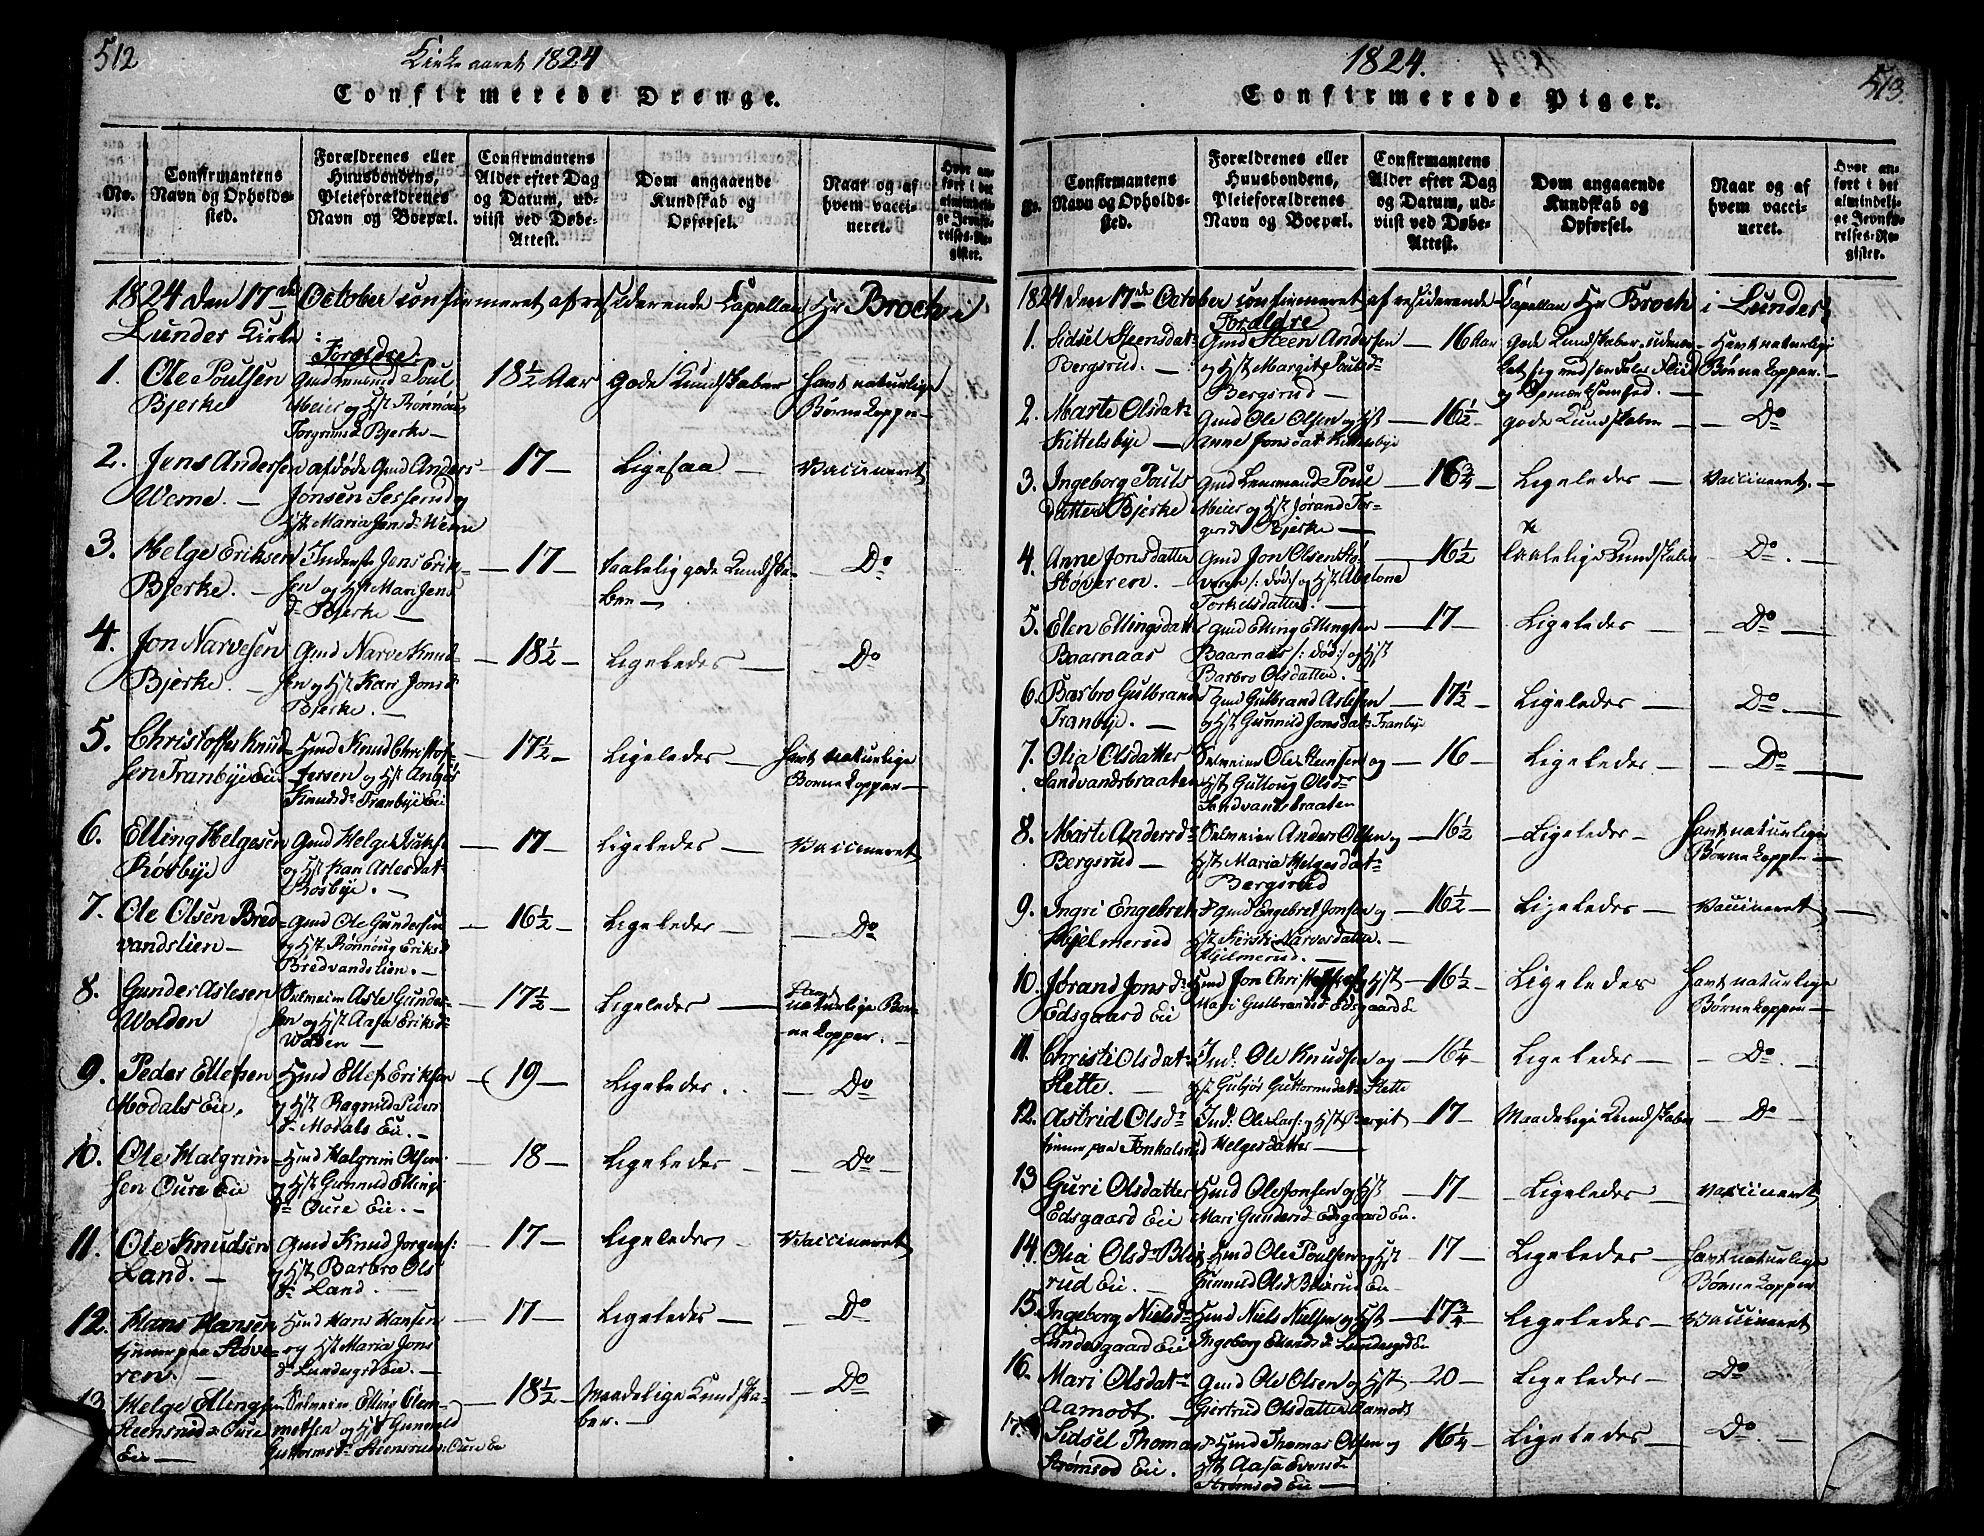 512
Kirkeaaret 1824
Confirmerede Drenge.
No.
Confirmantens
Navn og Opholds-
sted.
Forældrenes eller
Huusbondens,
Pleieforældrenes
Navn og Boepæl.
Confirmantens
Alder efter Dag
og Datum, ud-
viist ved Døbe-
Attest.
Dom angaaende
Kundskab og
Opførsel.
Naar og af
hvem vacci-
neret.
Hvor an-
ført i det
almindeli-
ge Jevnfø-
relses-Re-
gister.
1824 den 17de October confirmeret af residerende Capellan Hr Broch i
Lunder Kirke
Forældre:
1. Ole Poulsen
Bjerke
Gmd Lensmd Poul
Meier og Hst Rønnoug
Torgrimsd Bjerke
18½ Aar
gode Kundskaber
havt naturlige
Børnekopper
2. Jens Andersen
Weme.
afdøde Gmd Anders
Jonsen Sesserud og
Hst Maria Jensd Weme
17
Ligesaa
Vaccineret
3. Helge Eriksen
Bjerke.
Inderst Jens Erik-
sen og Hst Mari Jens
d Bjerke
17
taalelig gode Kundska-
ber
Do
4. Jon Narvesen
Bjerke.
Gmd Narve Knud-
sen og Hst Kari Jonsd
Bjerke.
18½
Ligeledes
Do
5. Christoffer Knud-
sen Tranbye Eie
Hmd Knud Christof-
fersen og Hst
Knudsd Tranbye Eie
17½
Ligeledes
havt naturlige
Børnekopper
6. Elling Helgesen
Rosbye
Gmd Helge
og Hst Kari Aslesdat
Rosbye.
17
Ligeledes
Vaccineret
7. Ole Olsen Bred-
vandslien
Gmd Ole Gundersen
og Hst Rønnoug Eriksd
Bredvandslien.
16½
Ligeledes
Do
8. Gunder Aslesen
Wolden
Selveier Asle Gunder-
sen og Hst Aase Eriksd
Wolden
17½
Ligeledes
havt
naturlige Bør-
nekopper.
9. Peder Ellefsen
Modals Eie.
Hmd Ellef Eriksen
og Hst Ragnild Peders
d Modals Eie.
19
Ligeledes.
Do
10. Ole Halgrim-
sen Oure Eie
Hmd Halgrim Olsen
og Hst Gunnild Ellings
d Oure Eie.
18
Ligeledes
Do
11. Ole Knudsen
Land.
Gmd Knud Jorgens:
og Hst Barbro Ols
d Land.
17
Ligeledes
Vaccineret
12. Hans Hansen
tjener paa Støve-
ren.
Hmd Hans Hansen
og Hst Maria Jons
d Lundesgd Eie.
17
Ligeledes
Do
13. Helge Ellingsen
Steensrud Oure
Eie
Selveier Elling Clem-
metsen og Hst Gunnild
Guttormsd Steensrud Oure Eie
18½
Maadelige Kundska-
ber.
Do
1824.
513.
Confirmerede Piger.
No.
Confirmantens
Navn og Opholds-
sted.
Forældrenes eller
Huusbondens,
Pleieforældrenes
Navn og Boepæl.
Confirmantens
Alder efter Dag
og Datum, ud-
viist ved Døbe-
Attest.
Dom angaaende
Kundskab og
Opførsel.
Naar og af
hvem vacci-
neret.
Hvor an-
ført i det
almindeli-
ge Jevnfø-
relses-Re-
gister.
1824 den 17de October confirmeret af residerende Capellan Hr Broch i Lunder
Forældre
1. Sidsel Steensdat:
Bergsrud.
Gmd Steen Andersen
og Hst Margit Poulsd
Bergsrud
16 Aar
gode Kundskaber, udmær-
ket sig ved særdeles Flid
og Opmærksomhed.
Havt naturlige
Børnekopper.
2. Marte Olsdat:
Kittelsbye
Gmd Ole Olsen og Hst
Anne Jonsdat Kittelsbye
16½
gode Kundskaber
Do
3. Ingeborg Pouls
datter Bjerke
Gmd Lensmand Poul
Meier og Hst Jørand Tor-
gersd Bjerke
16¾
Ligeledes
Vaccineret.
4. Anne Jonsdatter
Støveren.
Gmd Jon Olsen Stø-
veren /: død :/ og Hst Abelone
Torkelsdatter.
16½
taalelige Kundskaber
Do
5. Elen Ellingsdatter
Baarnaas
Gmd Elling Ellingsen
Baarnaas /: død :/ og Hst
Barbro Olsdatter.
17
Ligeledes
Do
6. Barbro Gulbrands
Tranbye.
Gmd Gulbrand Aslesen
og Hst Gunnild Jonsdat: Tranbye
17½
Ligeledes
Do
7. Olia Olsdatter
Sandvandsbraaten
Selveier Ole Steensen og
Hst Gulloug Olsd
Sandvandsbraaten
16
Ligeledes
Do
8. Marte Andersd
Bergsrud
Selveier Anders Olsen og
Hst Maria Helgesdat
Bergsrud
16½
Ligeledes
Havt naturlige
Børnekopper
9. Ingri Engebret
Hjelmerud
Gmd Engebret Jonsen og
Hst Kirsti Narvesdatter.
Hjelmerud.
16½
Ligeledes
Vaccineret
10. Jørand Jonsd
Edsgaard Eie
Hmd Jon Christoffers og Hst
Mari Gulbrandsd Edsgaard E
16½
Ligeledes
Havt naturlige
Børnekopper
11. Christi Olsdat:
Slette.
Ind: Ole Knudsen og
Hst Gubjør Guttormsdat: Slette
16¼
Ligeledes
Do
12. Astrid Olsd
tjener paa Jonkalsrud
Ind: Ole Lars: og Hst Bergit
Helgesdatter
17
Maadelige Kundskaber
Do
13 Guri Olsdatter
Edsgaard Eie
Hmd Ole Jonsen og Hst
Mari Gundersd Edsgaard Eie.
17
Ligeledes
Vaccineret
14. Olia Olsd Blei-
rud Eie.
Hmd Ole Poulsen og Hst
Gunnild Olsd Bleirud Eie
17
Ligeledes
Havt naturlige
Børnekopper
15. Ingeborg Nielsd
Lundesgaard Eie
Hmd Niels Nielsen og Hst
Ingeborg Lundesgd Eie
17¾
Ligeledes
Vaccineret
16. Mari Olsdat
Aamodt.
Gmd Ole Olsen og Hst
Giertrud Olsdatter Aamodt
20
Ligeledes
Do
17. Sidsel Thomas
Strømsod Eie.
Hmd Thomas Olsen og
Hst Aasa Evensd
Strømsod Eie
16¼
Ligeledes
Do